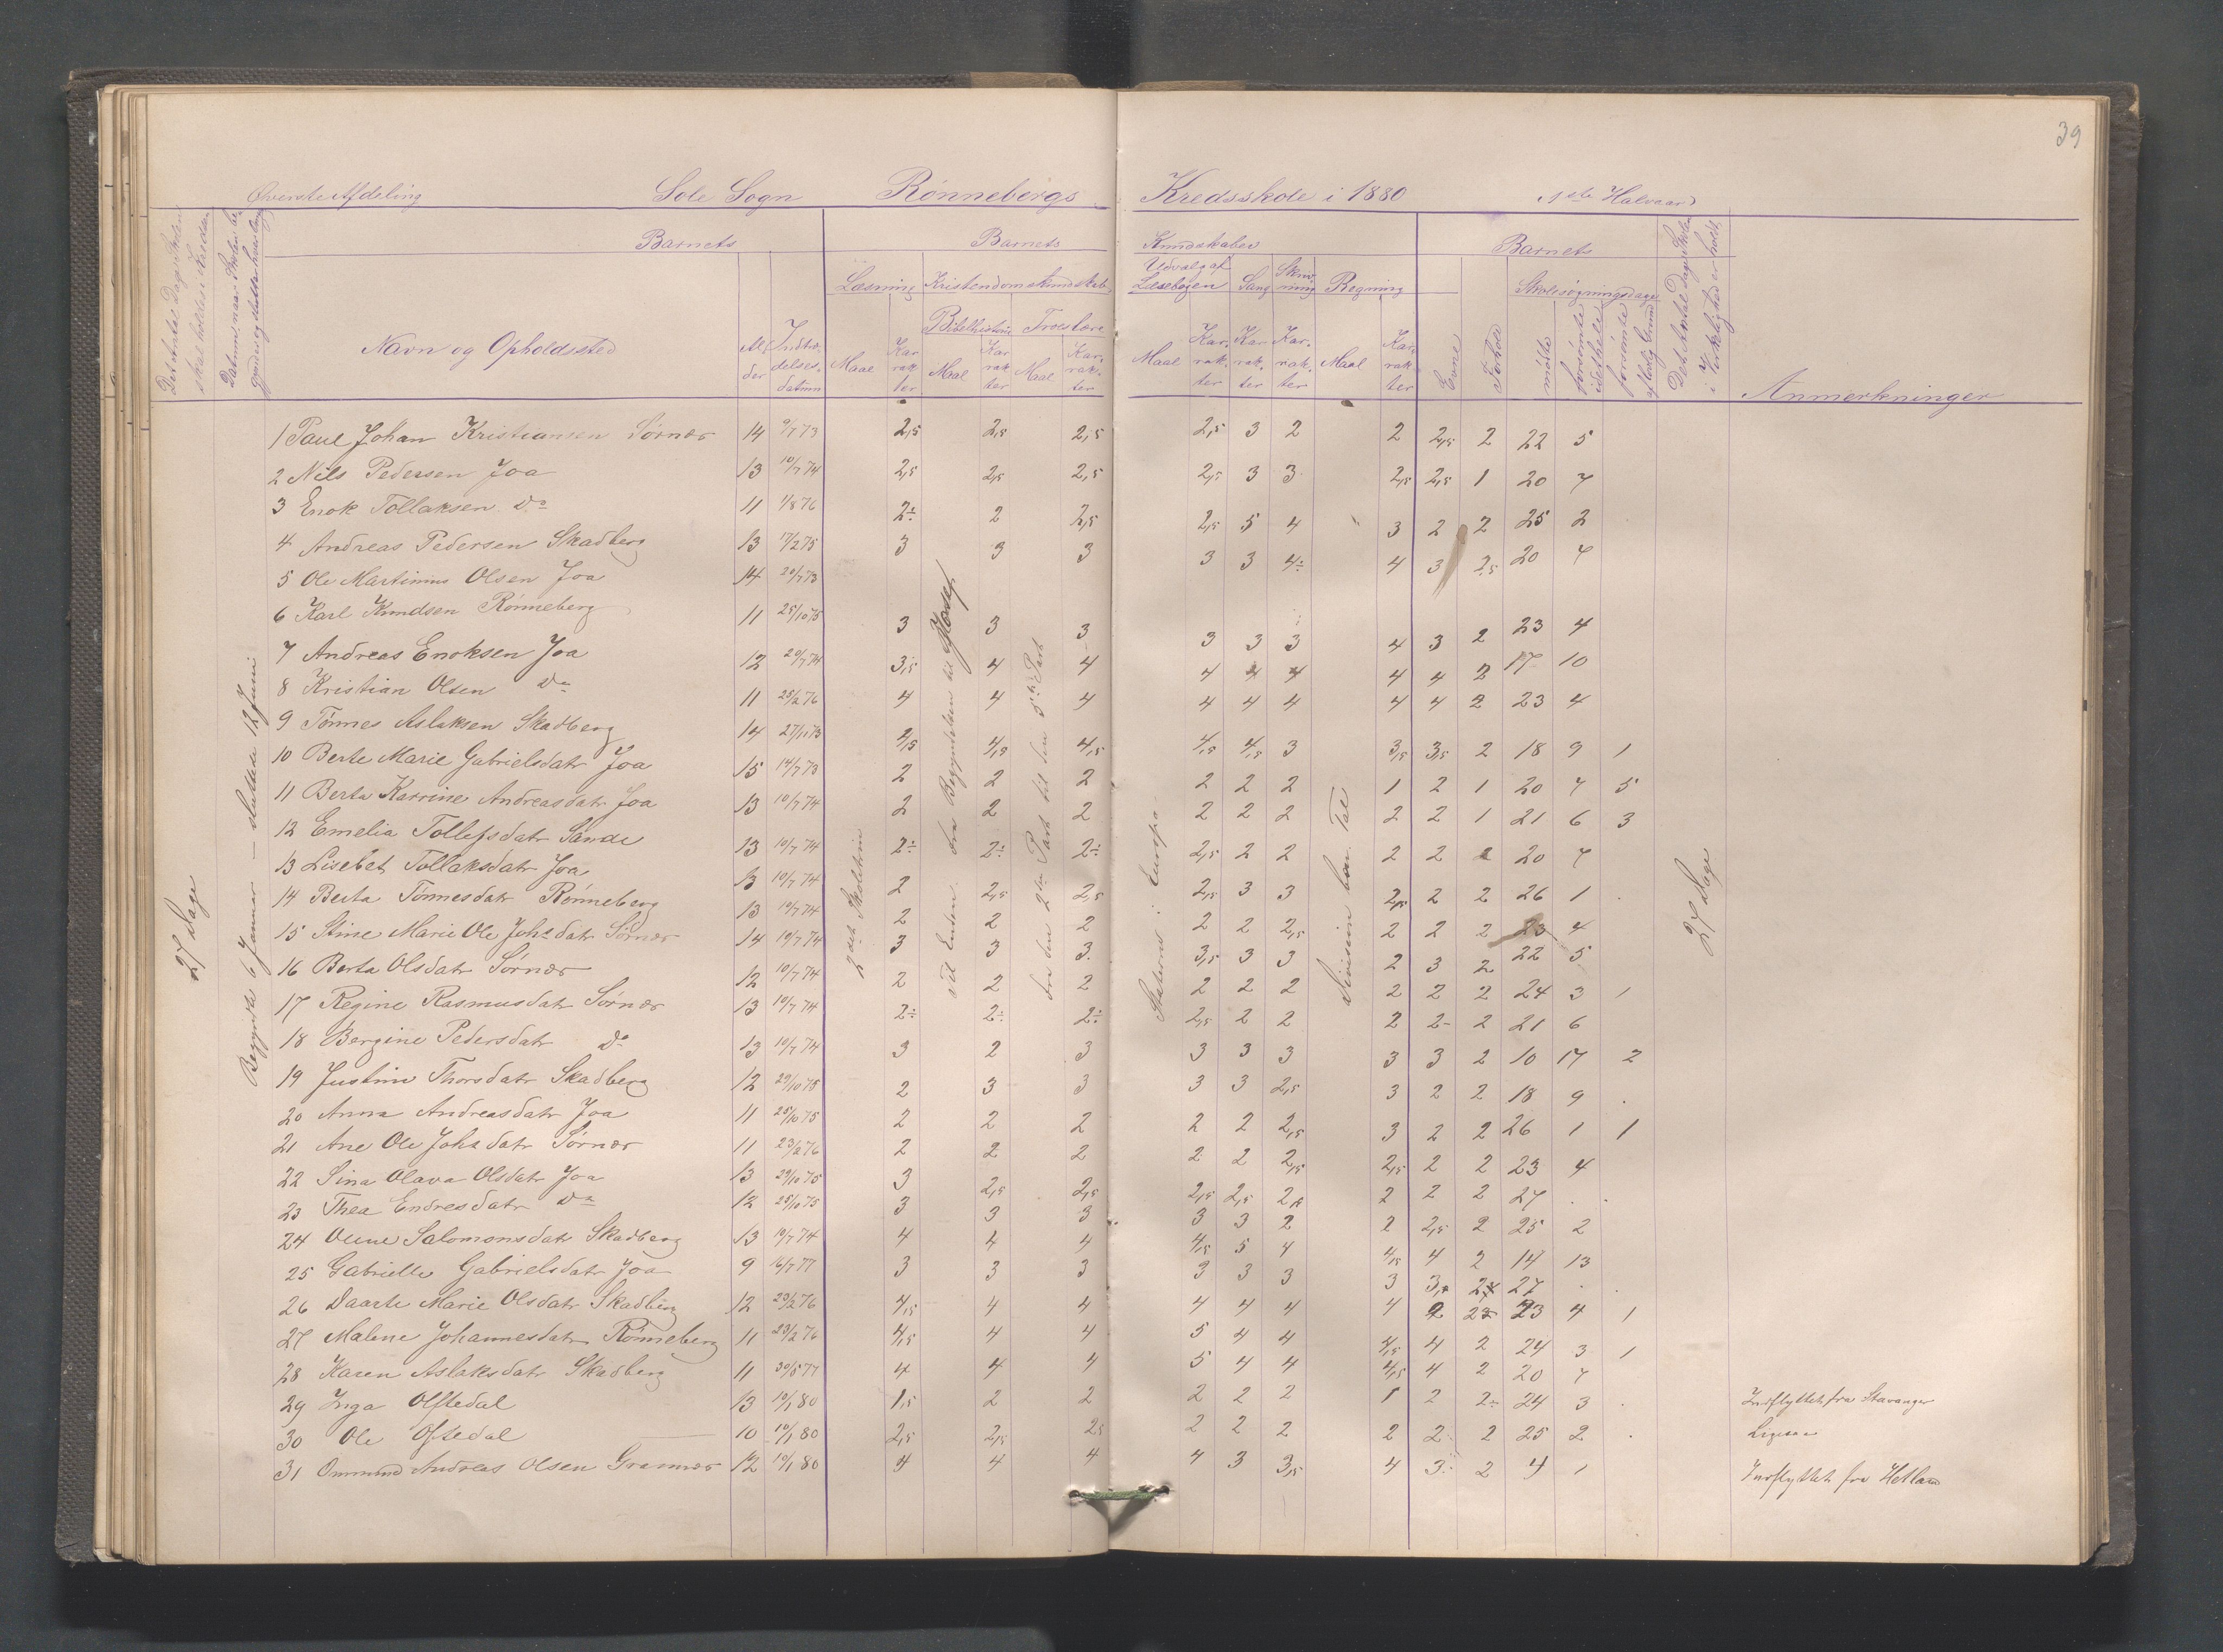 39
Øverste Afdeling Sole Sogn Rønnebergs Kredsskole i 1880 1ste Halvaar
Det Antal Dage Skolen skal holdes i Kredsen
Datum, naar Skolen begynder og slutter hver Gang
Barnets Barnets Kundskaber Barnets
Det Antal Dage Skolen i Virkelighed er holdt
Læsning Kristendomskundskab Udvalg af Læsebogen Sang Skrivning Regning Skolesøgningsdage
Bibelhistorie Troeslære
Navn og Opholdssted Alder Indtrædelsesdatum Maal Karrakter Maal Karrakter Maal Karrakter Maal Karrakter Karrakter Karrakter Maal Karrakter Evne Forhold mødte forsømte idethele forsømte af lovlig Grund Anmerkninger
27 Dage
Begyndte 6 Januar – sluttede 12 Juni
2det Skoletrin
fra Begyndelsen til Josef
fra den 2den Part til den 3die Part
Staterne i Europa
Division hm. Tal
27 Dage
1 Paul Johan Kristiansen Sørnæs 14 9/7 73 2,5 2,5 2,5 2,5 3 2 2 2,5 2 22 5
2 Nils Pedersen Joa 13 10/7 74 2,5 2,5 2,5 2,5 3 3 2,5 2,5 1 20 7
3 Enok Tollaksen do 11 1/8 76 2÷ 2 2,5 2,5 5 4 3 2 2 25 2
4 Andreas Pedersen Skadberg 13 17/2 75 3 3 3 3 3 4÷ 4 3 2,5 20 7
5 Ole Martinius Olsen Joa 14 20/7 73
6 Karl Knudsen Rønneberg 11 25/10 75 3 3 3 3 3 3 4 3 2 23 4
7 Andreas Enoksen Joa 12 20/7 74 3,5 4 4 4 4 4 4 4 2 17 10
8 Kristian Olsen do 11 25/2 76 4 4 4 4 4 4 4 4 2 23 4
9 Tønnes Aslaksen Skadberg 14 27/11 73 4,5 4,5 4,5 4,5 4,5 3 3,5 3,5 2 18 9 1
10 Berte Marie Gabrielsdatr Joa 15 14/7 73 2 2 2 2 2 2 1 2 1 20 7 5
11 Berta Katrine Andreasdatr Joa 13 10/7 74 2 2 2 2 2 2 2 2 1 21 6 3
12 Emelia Tollefsdatr Sande 13 10/7 74 2÷ 2÷ 2÷ 2,5 2 2 2 2 2 20 7
13 Lisebet Tollaksdatr Joa 13 10/7 74 2 2,5 2,5 2,5 3 3 2,5 2 2 26 1
14 Berta Tønnesdatr Rønneberg 13 10/7 74 2 2 2 2 2 2,5 2 2 2 23 4
15 Stine Marie Ole Johs datr Sørnæs 14 10/7 74 3 3 3 3,5 3 3 2 3 2 22 5
16 Berta Olsdatr Sørnæs 12 10/7 74 2 2 2 2 2 2 2 2 2 24 3 1
17 Regine Rasmusdatr Sørnæs 13 10/7 74 2÷ 2÷ 2÷ 2,5 2 2 2 2 2 21 6
18 Bergine Pedersdatr do 13 10/7 74 3 2 3 3 3 3 3 3 2 10 17 2
19 Justine Thorsdatr Skadberg 12 29/10 75 2 3 3 3 3 2,5 3 2 2 18 9
20 Anna Andreasdatr Joa 11 25/10 75 2 2 2 2 2 2,5 3 2 2 26 1 1
21 Ane Ole Johs datr Sørnæs 11 23/2 76 2 2 2 2 2 2,5 2,5 2 2 23 4
22 Sina Olava Olsdatr Joa 13 29/10 75 3 2,5 2,5 2,5 2,5 2,5 2 2 2 27
23 Thea Endresdatr do 12 25/10 75 3 3 3 3 3 2 2 2,5 2 25 2
24 Oline Salomonsdatr Skadberg 13 10/7 74 4 4 4 4,5 5 4 4,5 4 2 14 13
25 Gabrielle Gabrielsdatr Joa 9 16/7 77 3 3 3 3 3 3 3 3 2 27
26 Daarte Marie Olsdatr Skadberg 12 29/2 76 4,5 4 4 4 4 4 4 2 23 4 1
27 Malene Johannesdatr Rønneberg 11 23/2 76 4,5 4 4 5 4 4 4,5 4 2 24 3 1
28 Karen Aslaksdatr Skadberg 11 30/5 77 4 4 4 5 4 4 4,5 4 2 20 7
29 Inga Olftedal 13 10/1 80 1,5 2 2 2 2 2 1 2 2÷ 24 3 Indflyttet fra Stavanger
30 Ole Oftedal 10 10/1 80 2,5 2,5 2,5 2 2 2 2 2 2 25 2 Ligesaa
31 Ommund Andreas Olsen Grannæs 12 10/1 80 4 4 4 4 3 3,5 4 3÷ 2 4 1 Indflyttet fra Hetland